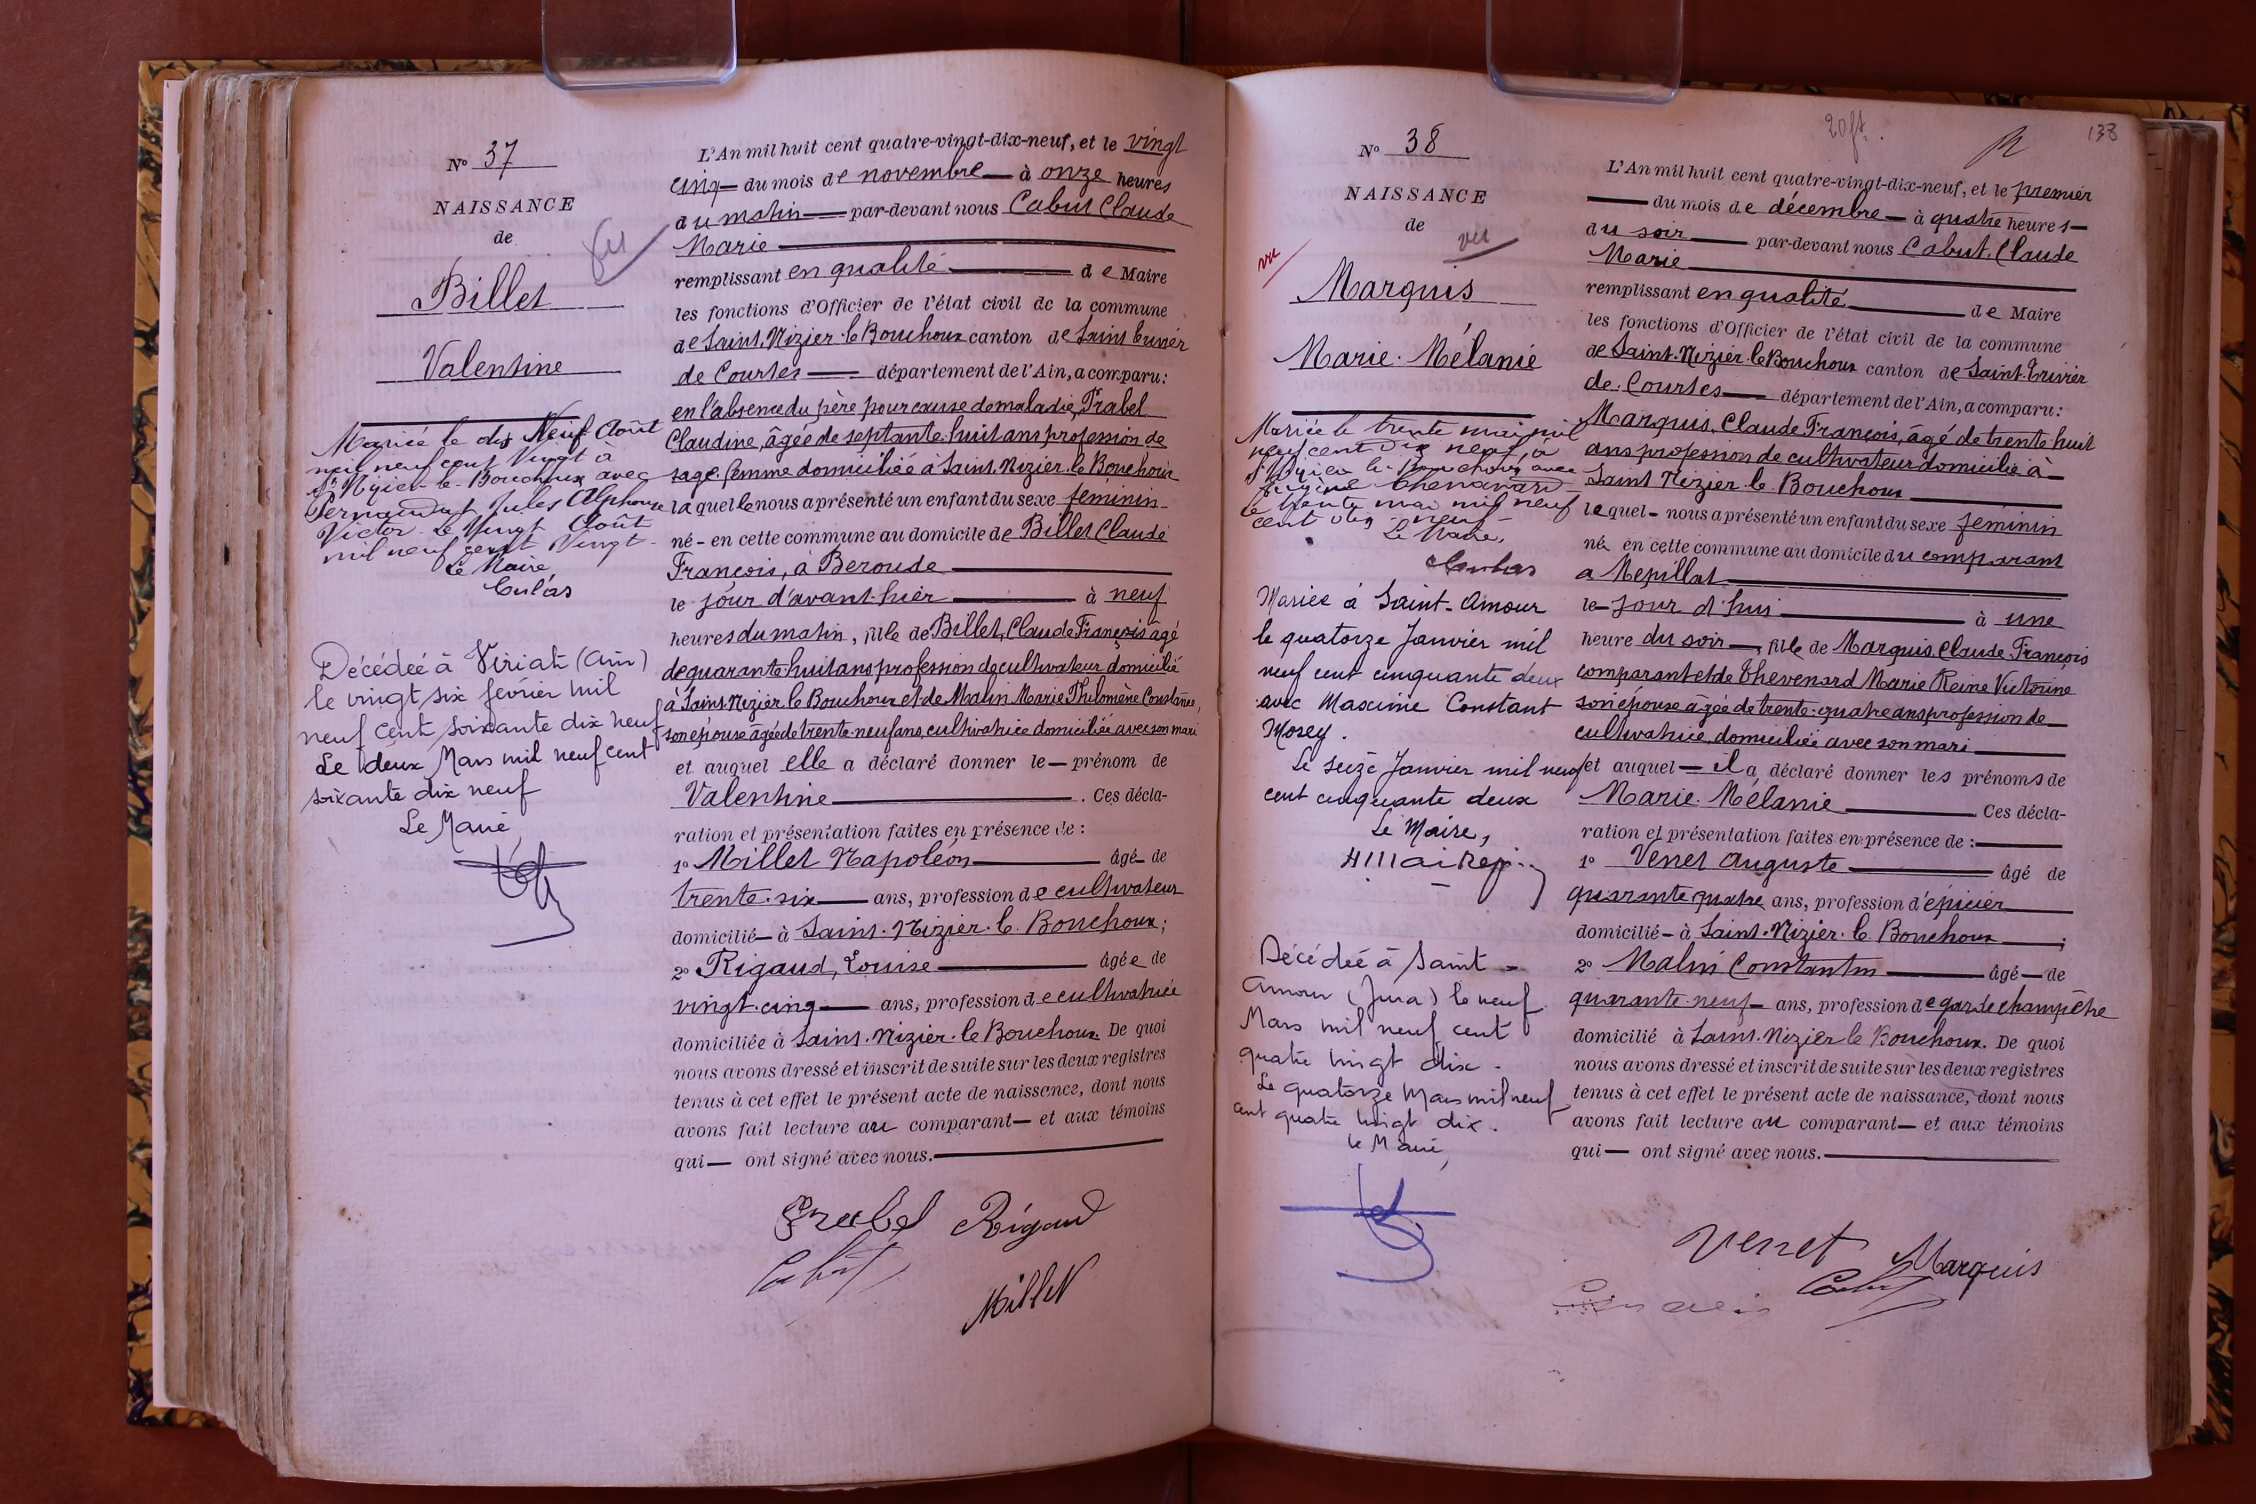 N° 37
NAISSANCE
de
vu
Billet
Valentine
Mariée le dix Neuf Août
mil neuf cent Vingt à
St Nizier-le-Bouchoux avec
Jules Alphonse
Victor le Vingt Août
mil neuf cent Vingt
Le Maire
Décédée à Viriat (Ain)
le vingt six février mil
neuf cent soixante dix neuf
Le deux Mars mil neuf cent
soixante dix neuf
Le Maire,
L'An mil huit cent quatre-vingt-dix-neuf, et le vingt
cinq du mois de novembre à onze heures
du matin par-devant nous Cabut Claude
Marie
remplissant en qualité de Maire
les fonctions d'Officier de l'état civil de la commune
de Saint-Nizier-le-Bouchoux canton de Saint Trivier
de Courtes département de l'Ain, a comparu:
en l'absence du père pour cause de maladie, Frabel
Claudine, âgée de septante-huit ans profession de
sage-femme domiciliée à Saint-Nizier-le-Bouchoux
laquelle nous a présenté un enfant du sexe féminin
né- en cette commune au domicile de Billet Claude
François, à Beroude
le jour d'avant-hier à neuf
heures du matin, fille de Billet, Claude François âgé
de quarante-huit ans profession de cultivateur domicilié
à Saint-Nizier-le-Bouchoux et de Malin Marie Philomène Constance,
son épouse âgée de trente-neuf ans, cultivatrice domiciliée avec son mari
et auquel elle a déclaré donner le prénom de
Valentine . Ces décla-
ration et présentation faites en présence de :
1° Millet Napoléon âgé de
trente-six ans, profession de cultivateur
domicilié à Saint-Nizier-le-Bouchoux ;
2° Rigaud, Louise âgée de
vingt-cinq ans, profession de cultivatrice
domiciliée à Saint-Nizier-le-Bouchoux. De quoi
nous avons dressé et inscrit de suite sur les deux registres
tenus à cet effet le présent acte de naissance, dont nous
avons fait lecture au comparant et aux témoins
qui ont signé avec nous.
Frabel Rigaud
Cabut
Millet
20 ft.
138
N° 38
NAISSANCE
de
vu
vu
Marquis
Marie-Mélanie
Mariée le trente mai mil
neuf cent dix neuf, à
St Nizier-le-Bouchoux avec
Chenavard
le trente mai mil neuf
cent dix-neuf
Le Maire,
Mariée à Saint-Amour
le quatorze Janvier mil
neuf cent cinquante deux
avec Maxime Constant
Mosey.
Le seize Janvier mil neuf
cent cinquante deux
Le Maire,
Décédée à Saint-
Amour (Jura) le neuf
Mars mil neuf cent
quatre vingt dix.
Le quatorze Mars mil neuf
cent quatre vingt dix.
Le Maire,
L'An mil huit cent quatre-vingt-dix-neuf, et le premier
du mois de décembre à quatre heures
du soir par-devant nous Cabut, Claude
Marie
remplissant en qualité de Maire
les fonctions d'Officier de l'état civil de la commune
de Saint-Nizier-le-Bouchoux canton de Saint-Trivier
de-Courtes département de l'Ain, a comparu:
Marquis, Claude François, âgé de trente huit
ans profession de cultivateur domicilié à
Saint Nizier-le-Bouchoux
lequel nous a présenté un enfant du sexe féminin
née en cette commune au domicile du comparant
a Mepillat
le jour d'hui à une
heure du soir, fille de Marquis, Claude François
comparant et de Thevenard Marie Reine Victorine
son épouse âgée de trente-quatre ans profession de
cultivatrice, domiciliée avec son mari
et auquel il a déclaré donner les prénoms de
Marie-Mélanie Ces décla-
ration et présentation faites en présence de :
1° Venet Auguste âgé de
quarante quatre ans, profession d'épicier
domicilié à Saint-Nizier-le-Bouchoux ;
2° Malin Constantin âgé de
quarante-neuf ans, profession de garde champêtre
domicilié à Saint-Nizier le Bouchoux. De quoi
nous avons dressé et inscrit de suite sur les deux registres
tenus à cet effet le présent acte de naissance, dont nous
avons fait lecture au comparant et aux témoins
qui ont signé avec nous.
Venet Marquis
Cabut